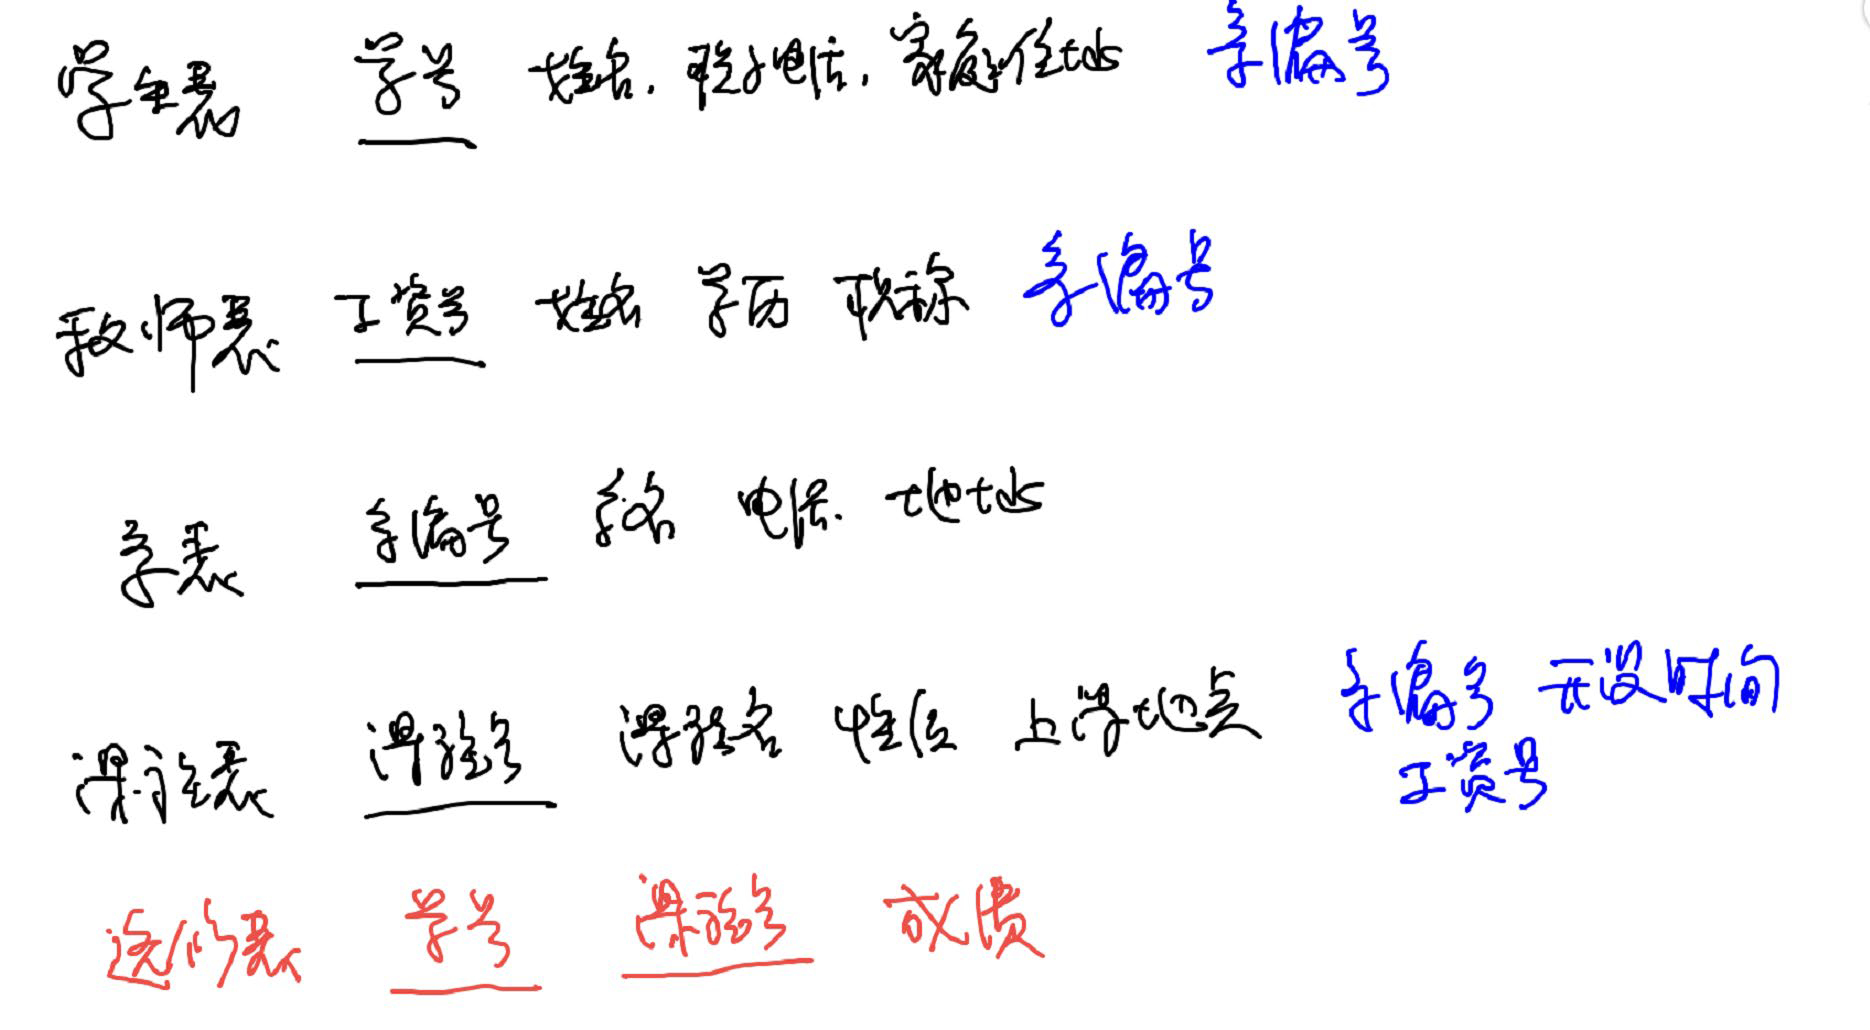 学生表 学号 姓名. 联系电话, 家庭住址 系编号
教师表 工资号 姓名 学历 职称 系编号
系表 系编号 系名 电话. 地址
课程表 课程号 课程名 性质 上课地点 系编号 开设时间
工资号
选修表 学号 课程号 成绩